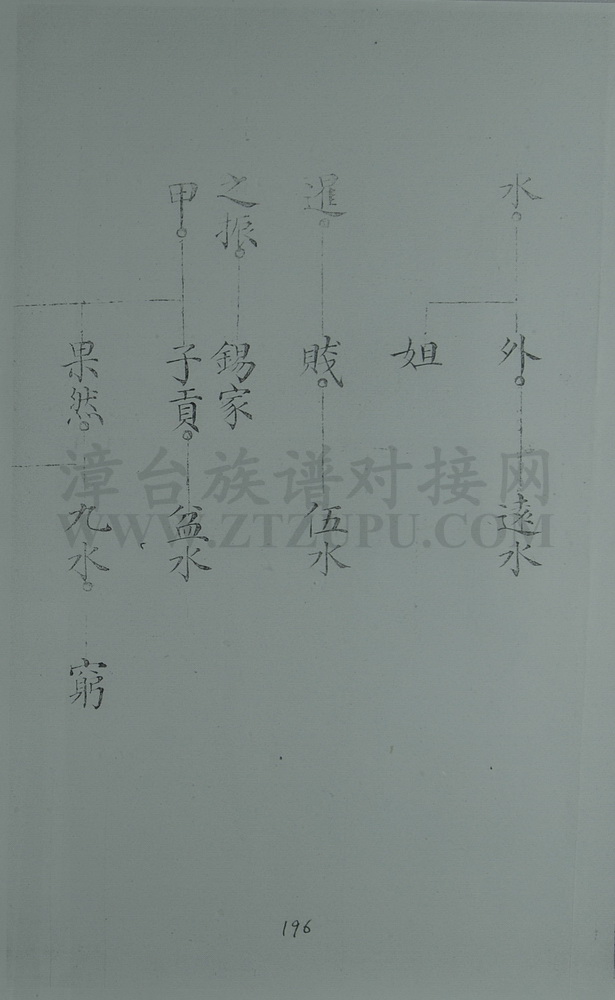 水
外
遠水
姐
暹
賤
伍水
之振
錫家
甲
子貢
盆水
果然
九水
窮
漳台族谱对接网
WWW.ZTZUPU.COM
196